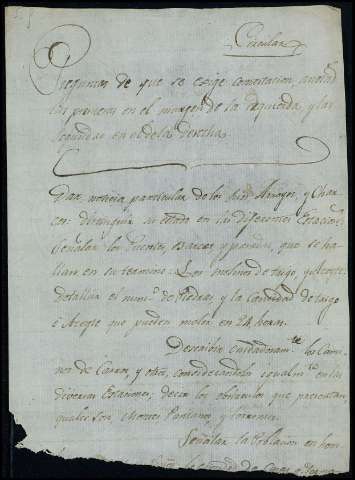 Circular
Preguntas de que se exige contestacion, anotad.
las primeras en el margen de la izquierda, y las
segundas en el de la derecha.
Dar noticia particular de los Rios, Arroyos, y Char
cos: distinguir su estado en las diferentes Estacion.
Señalar los Puentes, Barcas y que se ha
llan en su termino: Los molinos de trigo, y Aceyte,
detallar el num.o de Piedras y la cantidad de trigo
ó Aceyte que pueden moler en 24 horas.
Describir cuidadosam.te los Cami
nos de Carros, y otros, considerandolos igualm.te en las
diversas Estaciones, decir los obstaculos que presentan,
quales son Montes Pantanos y torrentes.
Señalar la Poblacion en hom